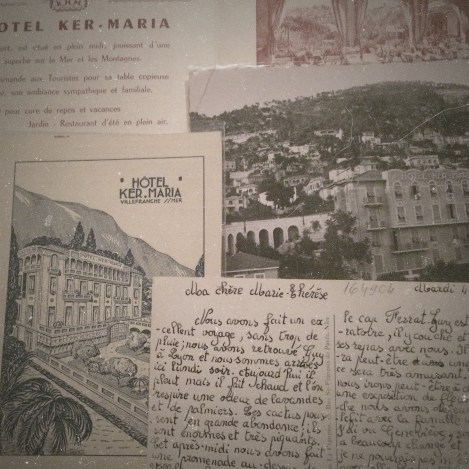 OTEL KER-MARIA
en plein midi, jouissant d'une
superbe sur la Mer et les Montagnes.
aux Touristes pour sa table copieuse
son ambiance sympathique et familiale.
pour cure de repos et vacances.
Jardin - Restaurant d'été en plein air.
"HÔTEL"
KER-MARIA
VILLEFRANCHE S/MER
HÔTEL KER-MARIA
Ma chère Marie-Thérèse
164904
Mardi 4
Nous avons fait un ex-
cellent voyage, sans trop de
pluie; nous avons retrouvé Guy
à Lyon et nous sommes arrivés
ici lundi soir. Aujourd'hui il
pleut mais il fait chaud et l'on
respire une odeur de lavandes
et de palmiers. Les cactus pous-
sent en grande abondance; ils
sont énormes et très piquants.
Cet après-midi nous avons fait
une promenade au-dessus
le cap Ferrat Guy est
il y couche et
ses repas avec nous. Il
va peut-être
ce sera très amusant.
nous irons peut-être à
une exposition de
nous avons
avec la famille
J'ai vu Geneviève;
a beaucoup changé et
je ne